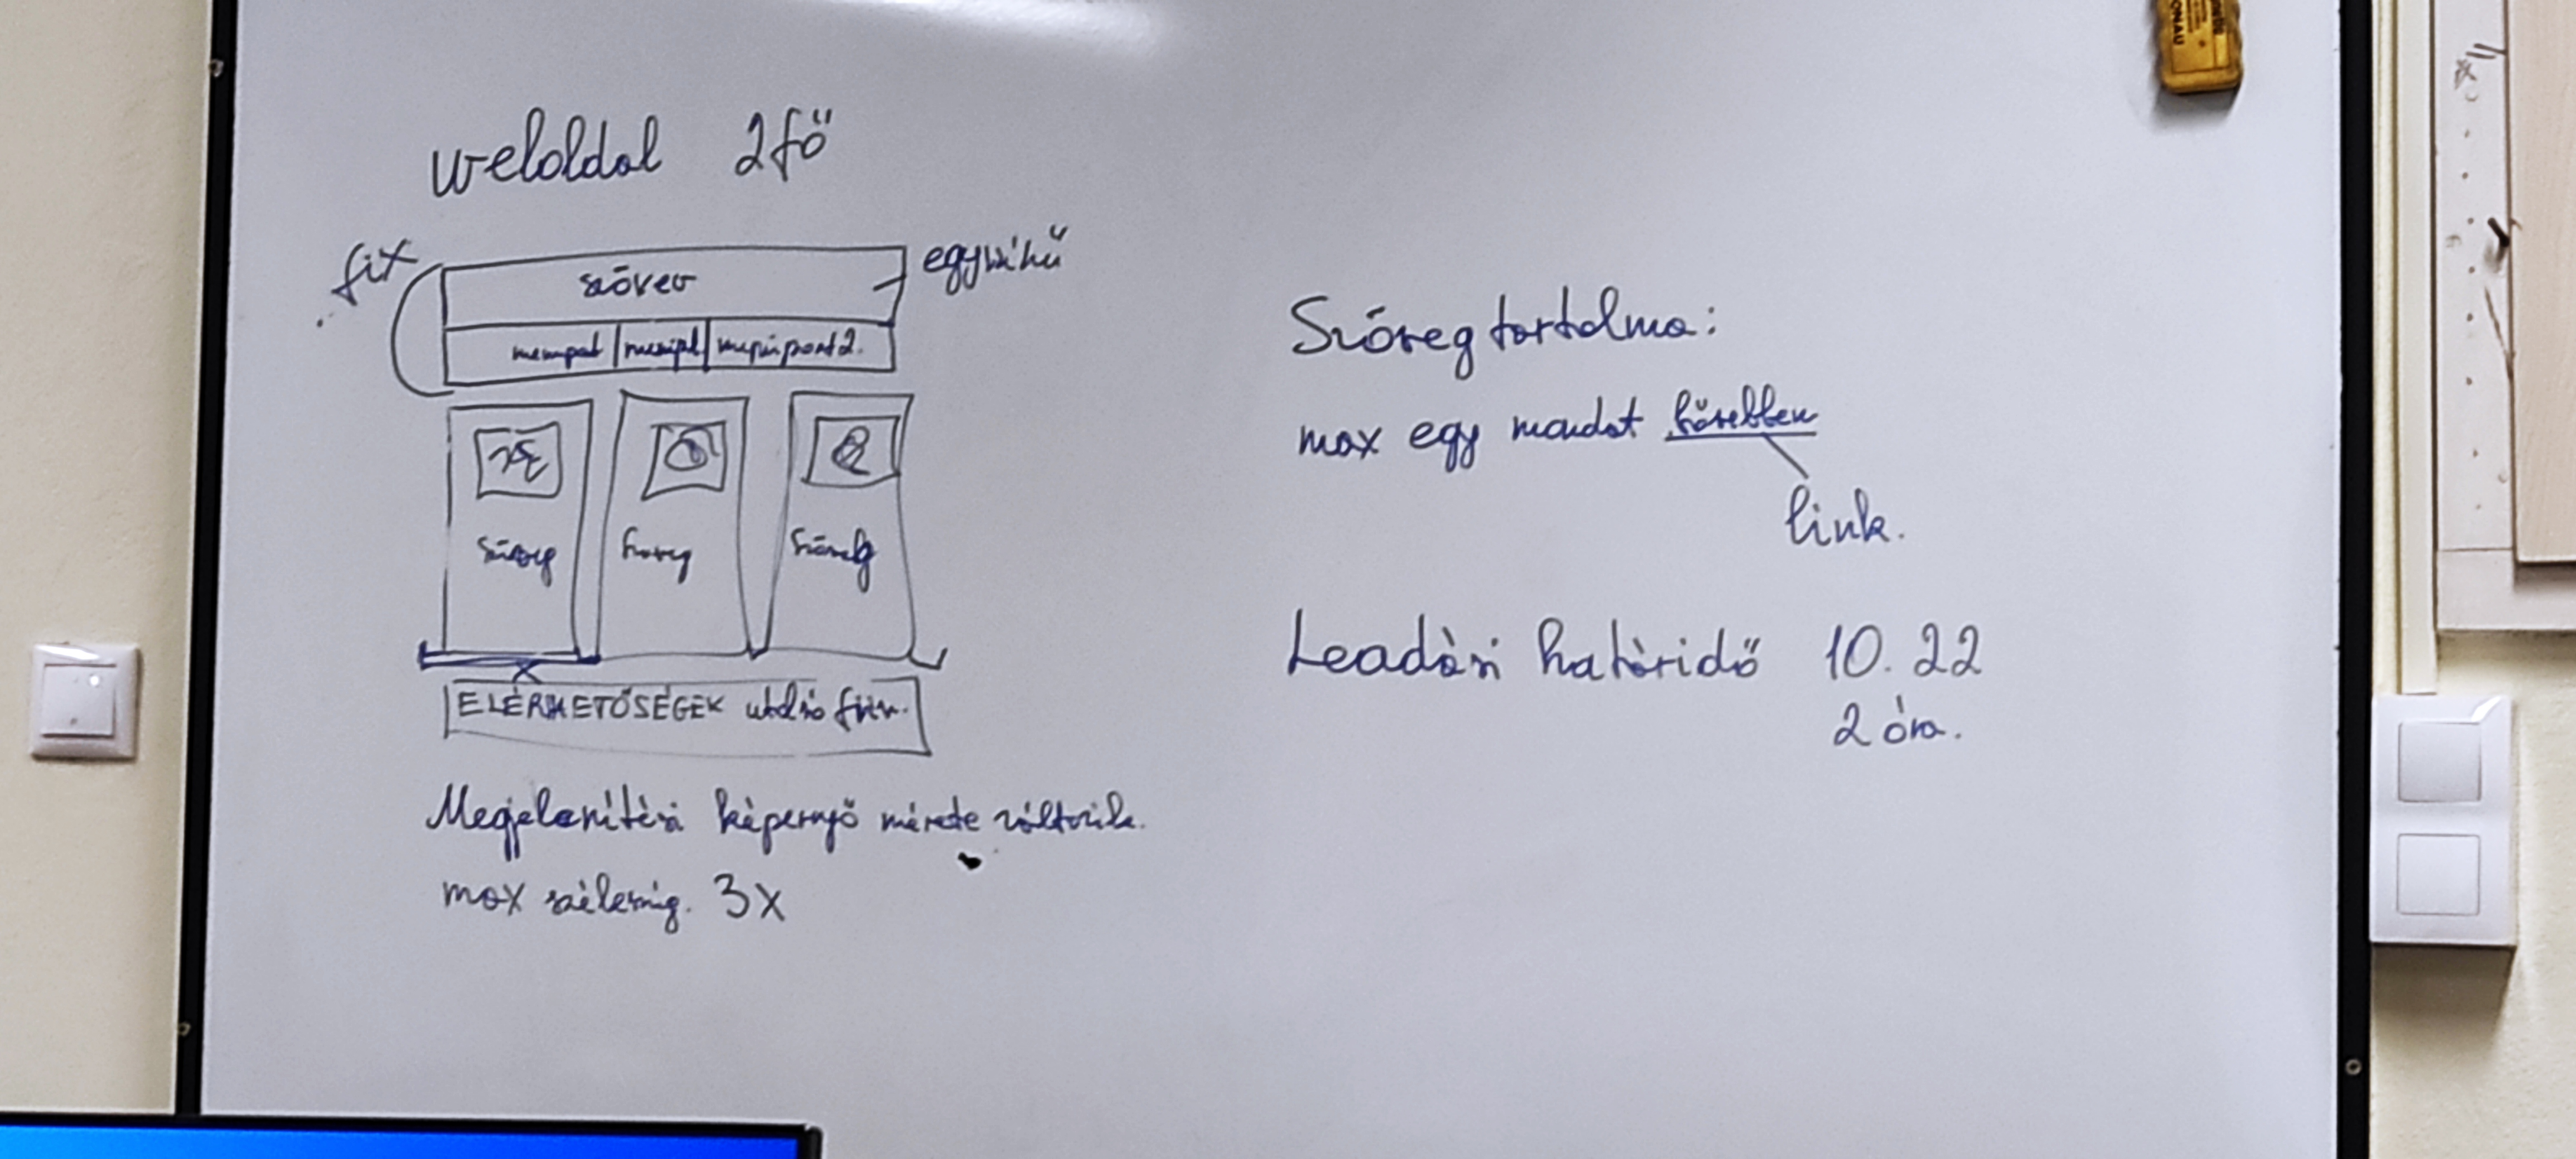 weloldal 2fő
fix
egyszínű
szöveg
menüpont menüpt menüpont2.
szöveg szöveg szöveg
ELÉRHETŐSÉGEK utolsó
Megjelenítési képernyő mérete változik.
max szélesség. 3x
Szöveg tartalma:
max egy mondat bővebben
link.
Leadási határidő 10.22
2 óra.